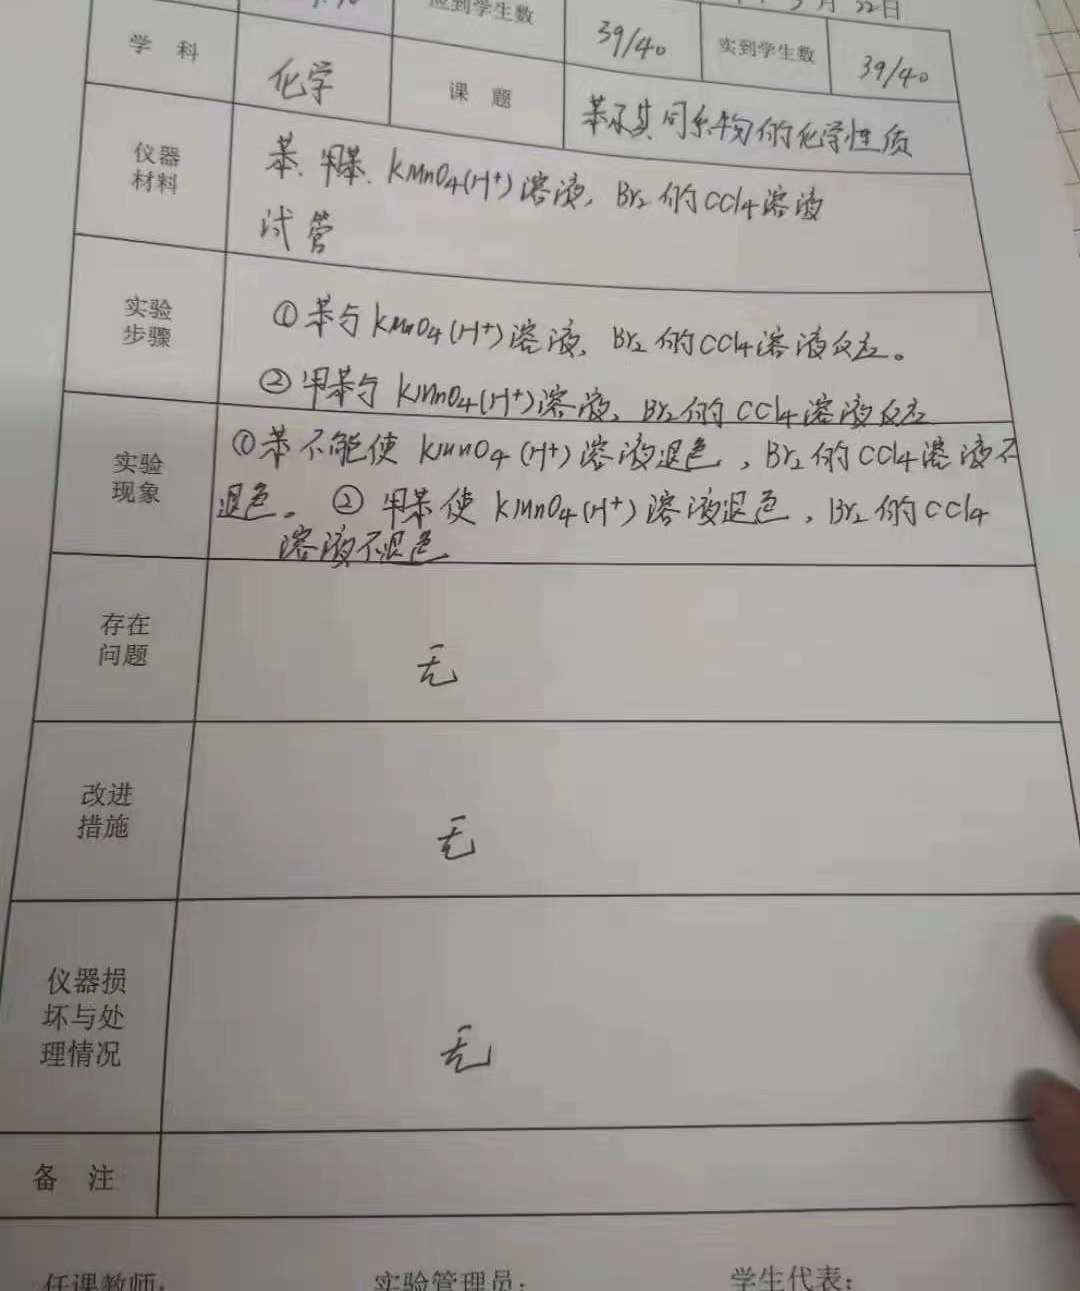 应到学生数
39/40
月22日
学 科
化学
课 题
实到学生数
39/40
苯及其同系物的化学性质
仪器
材料
苯、甲苯、KMnO4(H+)溶液，Br2的CCl4溶液
试管
实验
步骤
①苯与KMnO4(H+)溶液、Br2的CCl4溶液反应。
②甲苯与KMnO4(H+)溶液、Br2的CCl4溶液反应
实验
现象
①苯不能使KMnO4(H+)溶液退色，Br2的CCl4溶液不
退色。②甲苯使KMnO4(H+)溶液退色，Br2的CCl4
溶液不退色
存在
问题
无
改进
措施
无
仪器损
坏与处
理情况
无
备 注
任课教师：
实验管理员：
学生代表：